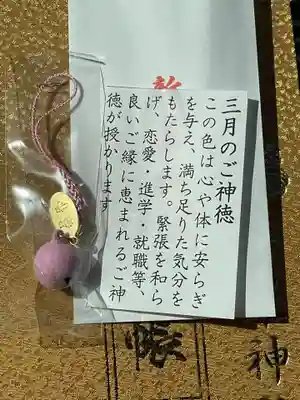 三月のご神徳
この色は心や体に安らぎ
を与え、満ち足りた気分を
もたらします。緊張を和ら
げ、恋愛・進学・就職等、
良いご縁に恵まれるご神
徳が授かります
神